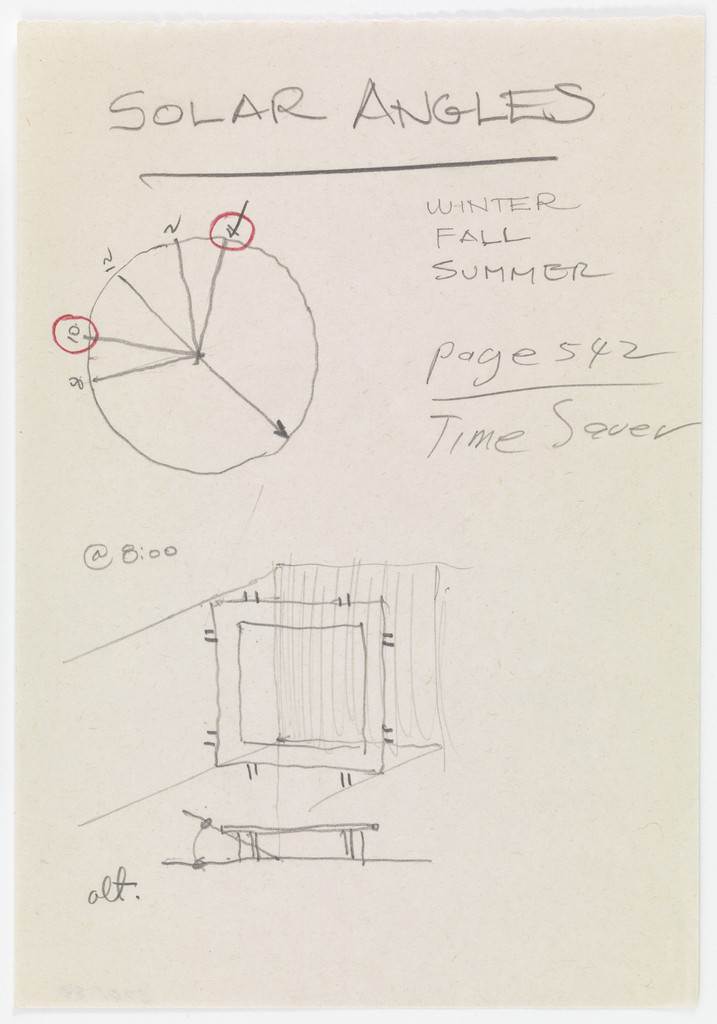 SOLAR ANGLES
WINTER
FALL
SUMMER
page 542
Time Saver
4
2
12
10
8
@ 8:00
alt.